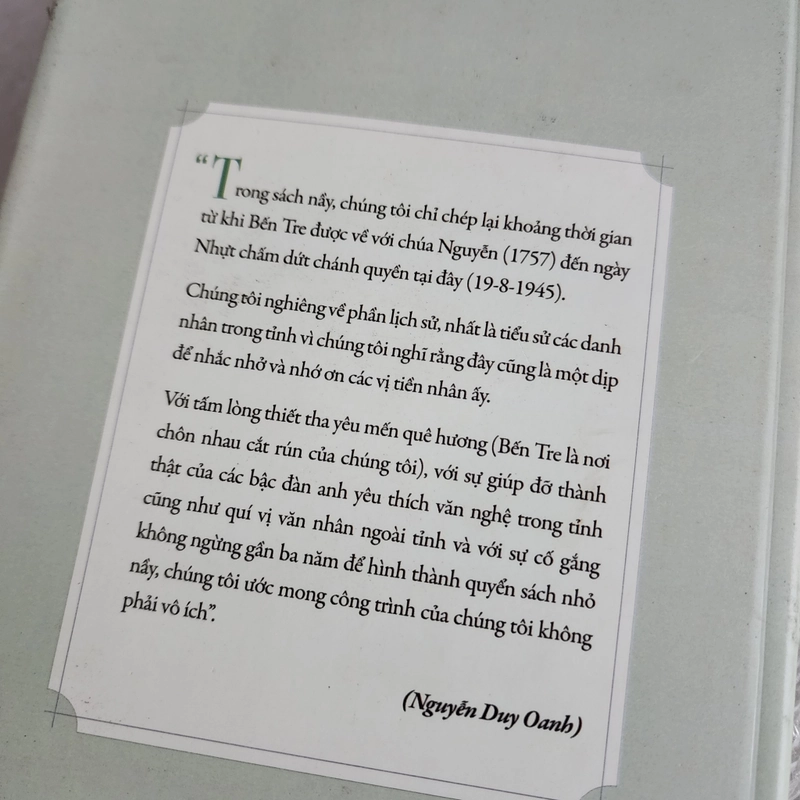 “Trong sách nầy, chúng tôi chỉ chép lại khoảng thời gian
từ khi Bến Tre được về với chúa Nguyễn (1757) đến ngày
Nhựt chấm dứt chánh quyền tại đây (19-8-1945).
Chúng tôi nghiêng về phần lịch sử, nhất là tiểu sử các danh
nhân trong tỉnh vì chúng tôi nghĩ rằng đây cũng là một dịp
để nhắc nhở và nhớ ơn các vị tiền nhân ấy.
Với tấm lòng thiết tha yêu mến quê hương (Bến Tre là nơi
chôn nhau cắt rún của chúng tôi), với sự giúp đỡ thành
thật của các bậc đàn anh yêu thích văn nghệ trong tỉnh
cũng như quí vị văn nhân ngoài tỉnh và với sự cố gắng
không ngừng gần ba năm để hình thành quyển sách nhỏ
nầy, chúng tôi ước mong công trình của chúng tôi không
phải vô ích”.
(Nguyễn Duy Oanh)